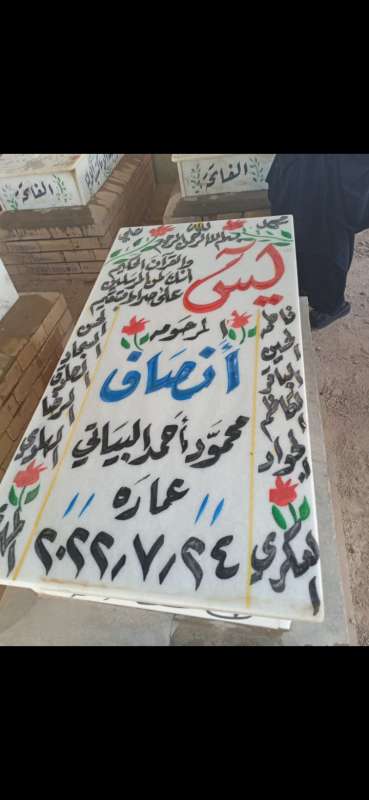 الفاتحة
الفاتحة
محمد
الله
علي
بسم الله الرحمن الرحيم
يس
والقرآن الحكيم
إنك لمن المرسلين
على صراط مستقيم
المرحومه
أنصاف
محمود أحمد البياتي
"عماره"
٢٠٢٢/٧/٢٤
فاطمة
الحسين
الباقر
الكاظم
الجواد
العسكري
الحسن
السجاد
الصادق
الرضا
الهادي